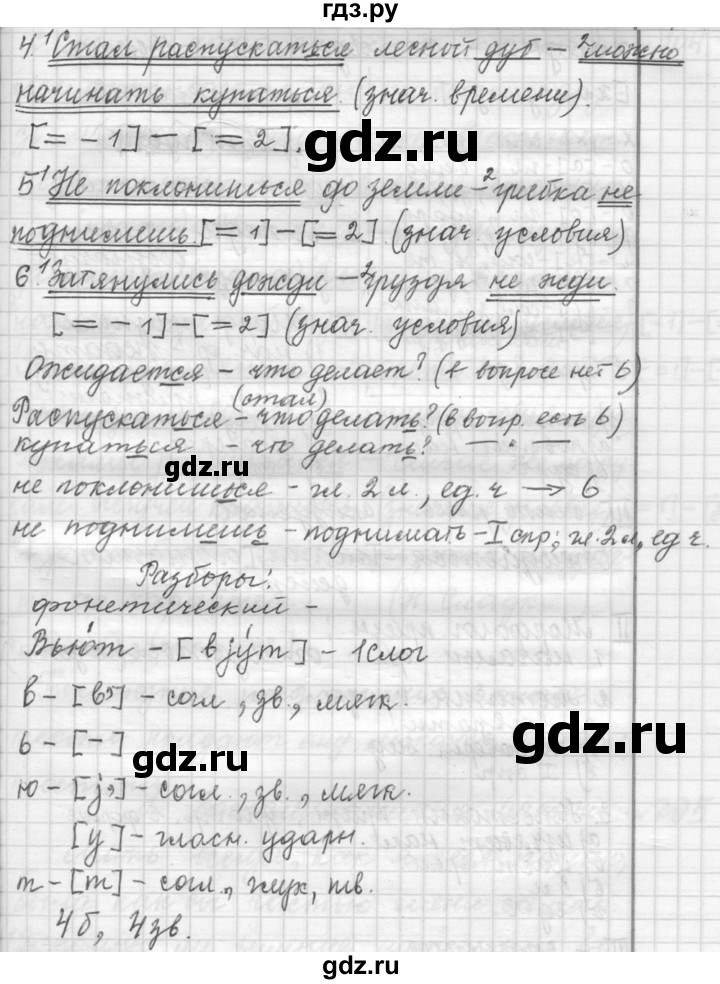 гдз.ру
4.¹Стал распускаться лесной дуб – ²можно
начинать купаться. (знач. времени).
[= - 1] — [ = 2].
5.¹Не поклонишься до земли – ²грибка не
поднимешь. [= 1] – [= 2]. (знач. условия)
6.¹Затянулись дожди – ²груздя не жди.
[= - 1] – [= 2] (знач. условия)
Ожидается – что делает? (в вопросе нет ь)
(стал)
Распускаться – что делать? (в вопр. есть ь)
купаться – что делать? — . —
gdz.ru
не поклонишься – гл. 2 л., ед. ч → ь
не поднимешь – поднимать – I спр.; гл. 2 л., ед ч.
Разборы:
фонетический –
Вьют – [вjут] – 1 слог
в – [в,] – согл., зв., мягк.
gdz.ru
ь – [-]
gdz.ru
ю – [j,] – согл., зв., мягк.
[у] – гласн. ударн.
т – [т] – согл., глух, тв.
4 б, 4 зв.
gdz.ru